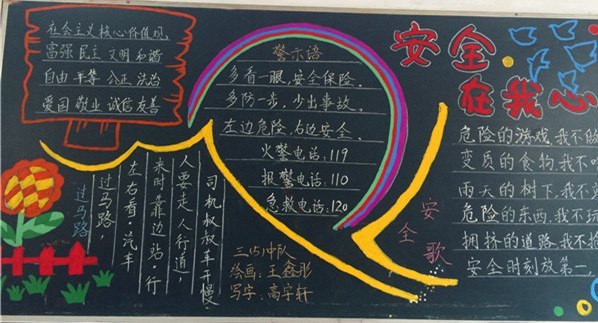 社会主义核心价值观
富强 民主 文明 和谐
自由 平等 公正 法治
爱国 敬业 诚信 友善
过马路
过马路,
左右看,汽车
来时靠边站,行
人要走人行道,
司机叔叔车开慢
警示语
多看一眼,安全保险.
多防一步,少出事故.
左边危险,右边安全.
火警电话:119
报警电话:110
急救电话:120
绘画:王鑫彤
写字:高宇轩
安全
在我心
安全歌
危险的游戏我不做
变质的食物,我不
雨天的树下,我不
危险的东西,我不玩
拥挤的道路,我不抢
安全时刻放第一,